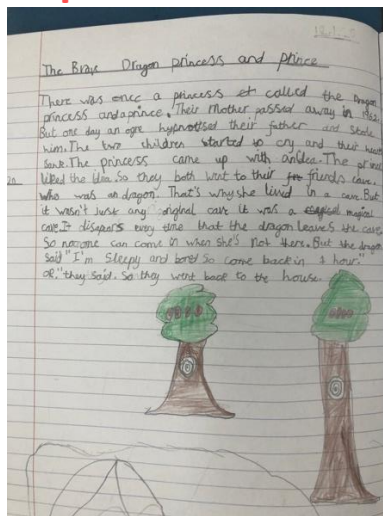 The Brave Dragon princess and prince
There was once a princess called the Dragon
princess and a prince. Their Mother passed away in 1962.
But one day an ogre hypnotised their father and stole
him. The two children started to cry and their hearts
sank. The princess came up with an idea. The prince
liked the idea. So they both went to their friends cave.
who was an dragon. That's why she lived in a cave. But
it wasn't just any original cave it was a magical
cave. It disepars every time that the dragon leaves the cave
So no one can come in when she's not there. But the dragon
said "I'm sleepy and bored So come back in 1 hour."
"OK." they said. So they went back to the house.